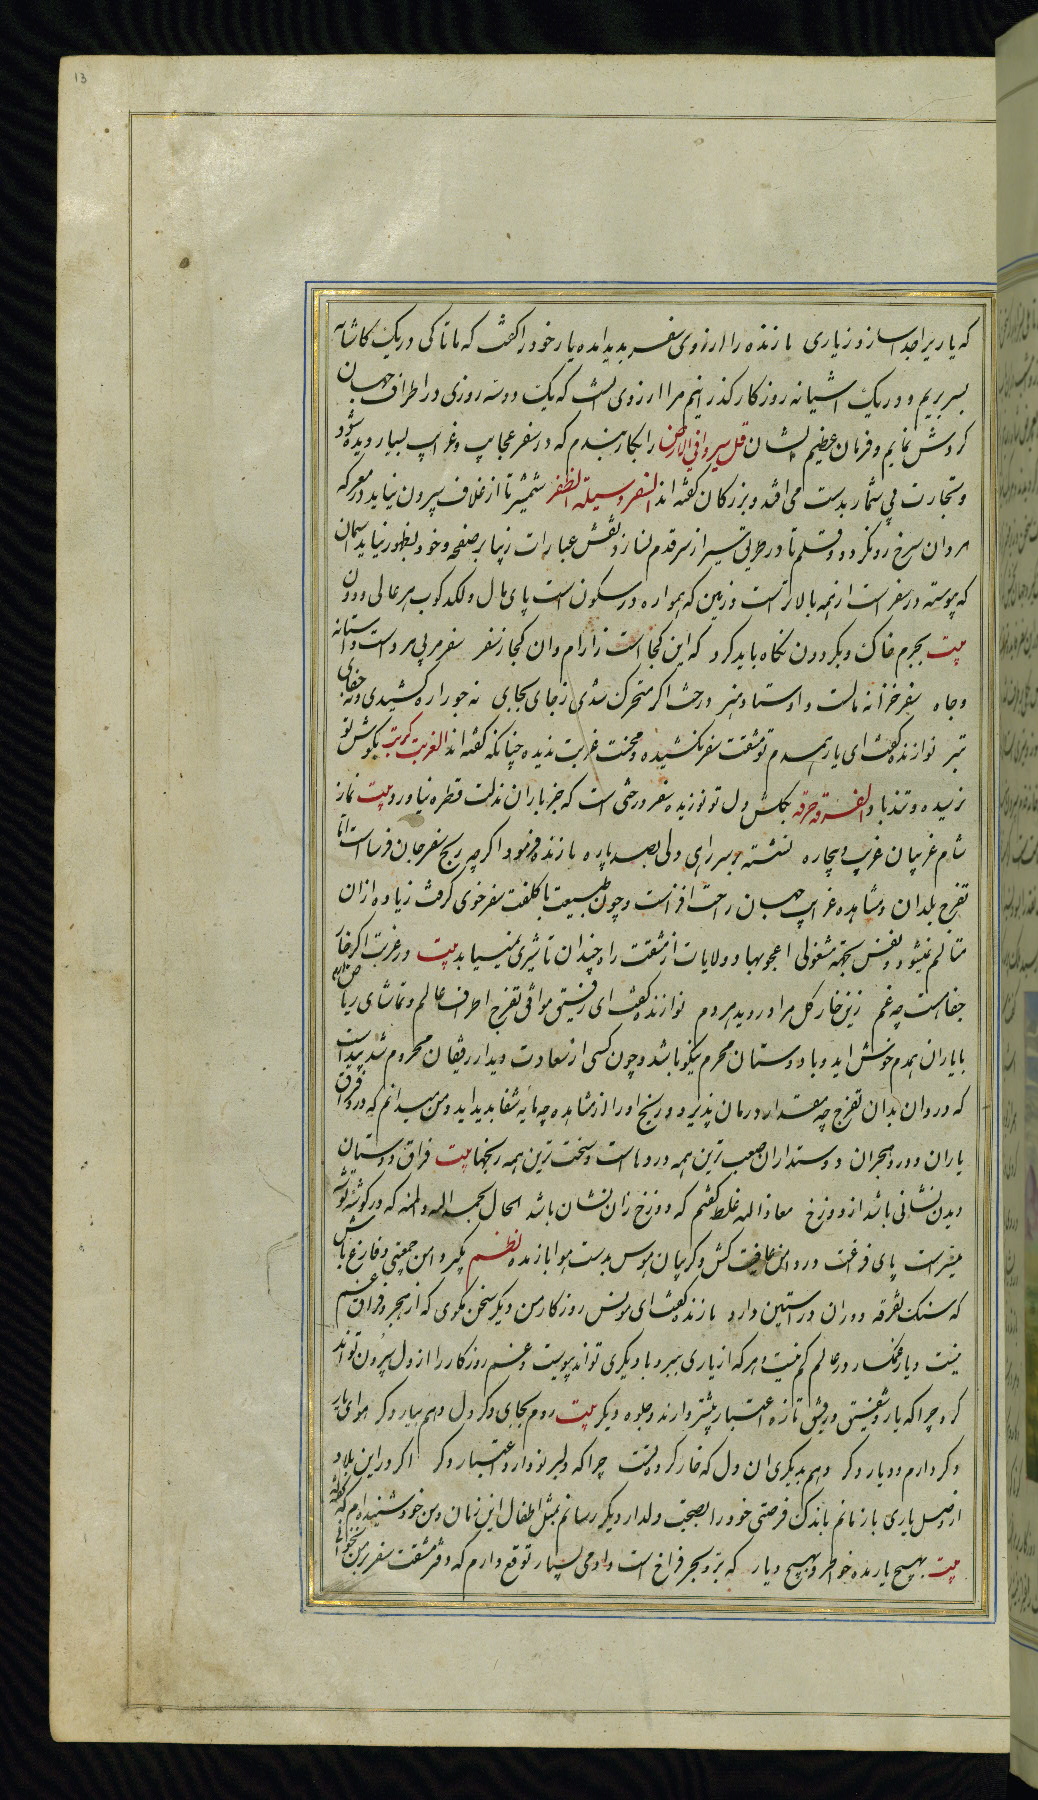 13
که یار یرا جدا سازد ز یاری بازنده را ارزوی سفر پدید امده یار خود را گفت که ما تا کی در یک کاشانه
بسر بریم و در یک اشیانه روزکار کذرانیم مرا ارزوی انست که یک دو سه روزی در اطراف جهان
کردش نمایم و فرمان عظیم الشان قل سیروا فی الارض را بکار بندم که در سفر عجایب و غرایب بسیار دیده شود
و تجارت بی شمار بدست می افتد و بزرکان کفته اند السفر وسیلة الظفر شمشیر تا از غلاف بیرون نیاید در معرکه
مردان سرخ رو نکردد و قلم تا در طریق سیر از سر قدم نسازد نقش عبارات زیبا بر صفحه وجود بظهور نیاید اسمان
که پیوسته در سفر است از همه بالاتر است و زمین که همواره در سکون است پای مال و لکد کوب هر عالی و دون
بیت بجرم خاک و بکردون نکاه باید کرد که این کجاست ز ارام و ان کجا ز سفر سفر مربی مرد است و استانه
جاه سفر خزانه مالست و اوستاد هنر درخت اکر متحرک شدی ز جای بجای نه جور اره کشیدی و نه جفای
تبر نوازنده کفت ای یار همدم تو مشقت سفر نکشیده و محنت غربت ندیده چنانکه کفته اند الغربت کربت بکوش تو
نرسیده و تندباد الفرقة حرقة بکلشن دل تو نوزیده سفر درختی است که جز باران مذلت قطره نیاورد بیت نماز
شام غریبان غریب و بیچاره نشسته بر سر راهی دلی بصد پاره بازنده فرمود اکرچه رنج سفر جان فرساست اما
تفرج بلدان و مشاهده غرایب جهان راحت افزاست و چون طبیعت با کلفت سفر خوی کرفت زیاده از ان
متالم نمیشود و نفس بجهة مشغولی اعجوبها و ولایات از مشقت راه چندان تاثیری نمییابد بیت در غربت اکر خار
جفا هست چه غم زین خار کل مراد روید هر دم نوازنده کفت ای رفیق موافق تفرج اطراف عالم و تماشای ریاض ارم
با یاران همدم خوش اید و با دوستان محرم نیکو باشد و چون کسی از سعادت دیدار رفیقان محروم شد پیداست
که درد ان بدان تفرج چه مقدار درمان پذیرد و رنج او را از مشاهده چه مایه شفا پدید اید و من میدانم که درد فراق
یاران و درد هجران دوستداران صعب ترین همه دردهاست و سخت ترین همه رنجها بیت فراق دوستان
دیدن نشانی باشد از دوزخ معاذ الله غلط کفتم که دوزخ زان نشان باشد الحال بحمد الله و المنه که در کوشه توشه
میسر است پای فراغت در دامن عافیت کش و کریبان هوس بدست هوا باز مده نظم بکیر دامن جمعیتی و فارغ باش
که سنک تفرقه دوران در استین دارد بازنده کفت ای مونس روزکار من دیکر سخن مکوی که از هجر و فراق غم
نیست و یار غمکسار در عالم کم نیست و هر که از یاری ببرد با دیکری تواند پیوست و غم روزکار را از دل بیرون تواند
کرد چرا که یار و شفیق و رفیق تازه اعتبار بیشتر دارند و جلوه دیکر بیت روم بجای دکر دل دهم بیار دکر هوای یار
دکر دارم و دیار دکر دهم بدیکری ان دل که خار کرده تست چرا که دلبر نو دارد اعتبار دکر اکر در این بلاد
از وصل یاری باز مانم باندک فرصتی خود را بصحبت دلدار دیکر رسانم بمثل اطفال این زمان و من خود شنیده ام که کفته
بیت بهیچ یار مده خواطر و بهیچ دیار که بر و بحر فراخ است و ادمی بسیار توقع دارم که دفتر مشقت سفر بر من نخوانی